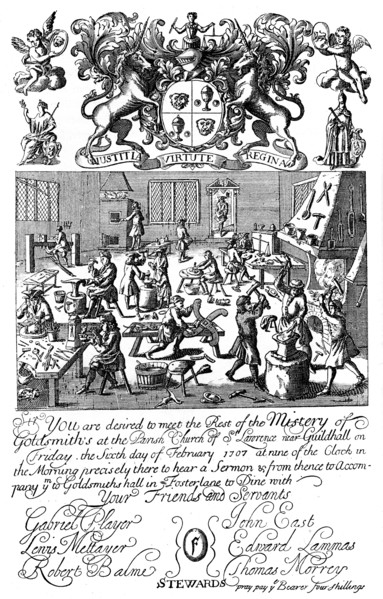 IUSTITIA VIRTUTE REGINA
Sr
You are desired to meet the Rest of the Mistery of
Goldsmiths at the Parish Church of St. Lawrence near Guildhall on
Friday the Sixth day of February 1707 at nine of the Clock in
the Morning precisely there to hear a Sermon & from thence to Accom-
pany ym to Goldsmiths hall in Fosterlane to Dine with
Your Friends and Servants
Gabriel Player
John East
Lewis Mettayer
Edward Lammas
Robert Balme
Thomas Morrey
STEWARDS
pray pay ye Bearer four shillings